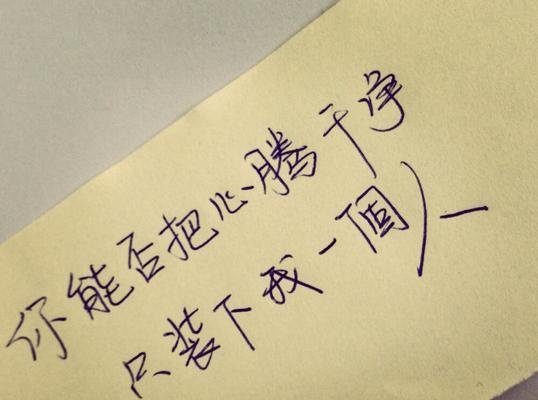 你能否把心腾干净
只装下我一個人